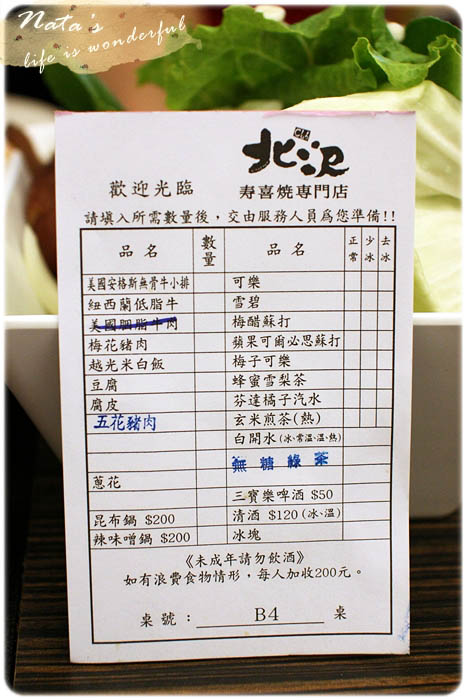 Nata's
life is wonderful
北沢
歡迎光臨 寿喜燒專門店
請填入所需數量後，交由服務人員為您準備!!
品名 數量 品名 正常 少冰 去冰
美國安格斯無骨牛小排 可樂
紐西蘭低脂牛 雪碧
美國胭脂牛肉 梅醋蘇打
梅花豬肉 蘋果可爾必思蘇打
越光米白飯 梅子可樂
豆腐 蜂蜜雪梨茶
腐皮 芬達橘子汽水
五花豬肉 玄米煎茶(熱)
白開水(冰、常溫、溫、熱)
無糖綠茶
蔥花
三寶樂啤酒 $50
昆布鍋 $200 清酒 $120 (冰、溫)
辣味噌鍋 $200 冰塊
《未成年請勿飲酒》
如有浪費食物情形，每人加收200元。
桌號： B4 桌